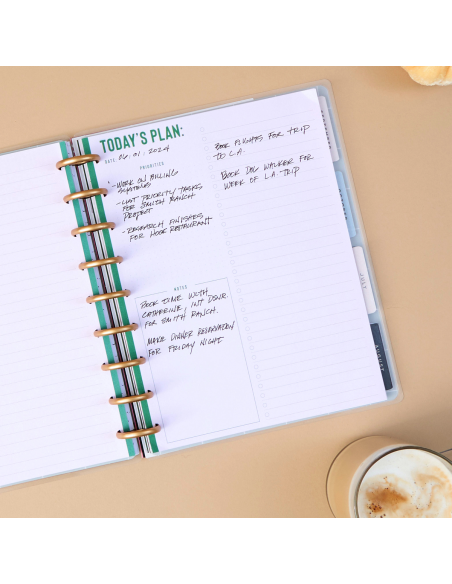 TODAY'S PLAN:
DATE 06.01.2024
PRIORITIES
- WORK ON BILLING
- LIST PRIORITY TASKS
FOR SMITH RANCH
PROJECT
- RESEARCH FINISHES
FOR MOOR RESTAURANT
BOOK FLIGHTS FOR TRIP
TO L.A.
BOOK DOG WALKER FOR
WEEK OF L.A. TRIP
NOTES
BOOK TIME WITH
CATHERINE, INT DSNR.
FOR SMITH RANCH.
MAKE DINNER RESERVATION
FOR FRIDAY NIGHT
JULY
AUGUST